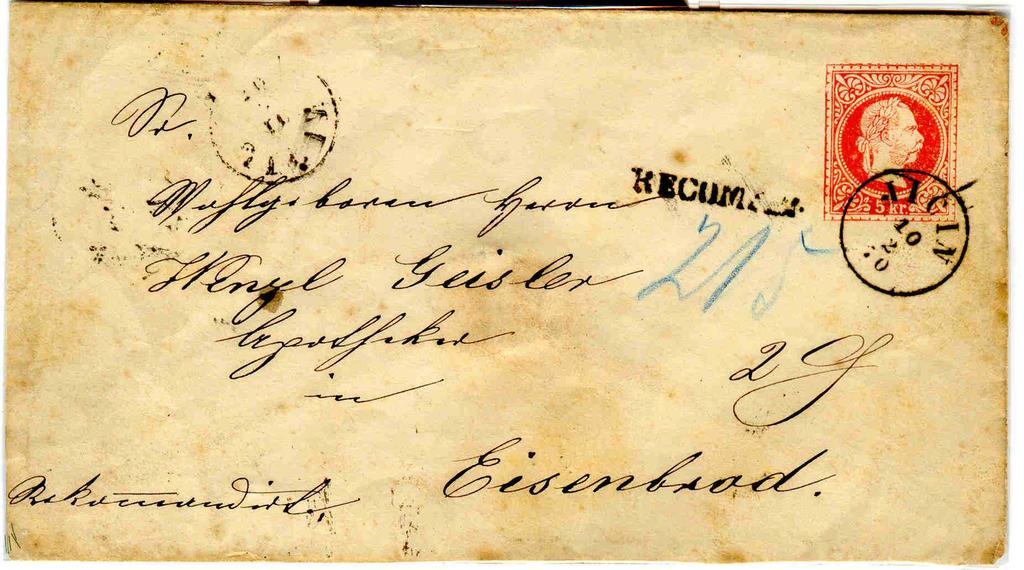 Sr.
Wohlgeboren Herrn
Wenzl Geisler
Apotheker
in
Eisenbrod.
Rekomandirt,
RECOMAN.
215
5 kr.
JICIN
10
2
70